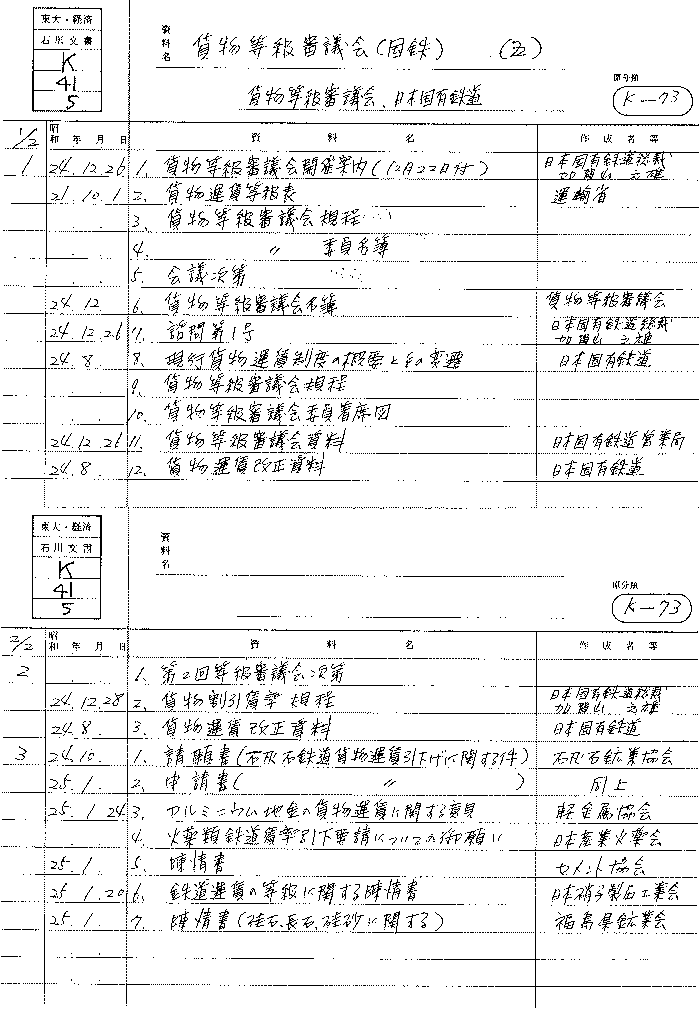 東大・経済
石川文書
K
41
5
資料名
貨物等級審議会(国鉄) (五)
貨物等級審議会、日本国有鉄道
原分類
K-73
1/2 昭和 年 月 日 資料名 作成者等
1 24.12.26 1. 貨物等級審議会開催案内(12月22日付) 日本国有鉄道総裁 加賀山 之雄
21.10.1 2. 貨物運賃等級表 運輸省
3. 貨物等級審議会規程
4. 〃 委員名簿
5. 会議次第
24.12 6. 貨物等級審議会名簿 貨物等級審議会
24.12.26 7. 諮問第1号 日本国有鉄道総裁 加賀山 之雄
24.8. 8. 現行貨物運賃制度の概要とその変遷 日本国有鉄道
9. 貨物等級審議会規程
10. 貨物等級審議会委員着席図
24.12.26 11. 貨物等級審議会資料 日本国有鉄道営業局
24.8. 12. 貨物運賃改正資料 日本国有鉄道
東大・経済
石川文書
K
41
5
資料名
原分類
K-73
2/2 昭和 年 月 日 資料名 作成者等
2 1. 第2回等級審議会次第
24.12.28 2. 貨物割引賃率規程 日本国有鉄道総裁 加賀山 之雄
24.8. 3. 貨物運賃改正資料 日本国有鉄道
3 24.10. 1. 請願書(石灰石鉄道貨物運賃引下げに関する件) 石灰石鉱業協会
25.1. 2. 申請書( 〃 ) 同上
25.1.24 3. アルミニウム地金の貨物運賃に関する意見 軽金属協会
4. 火薬類鉄道賃率引下要請についての御願い 日本産業火薬会
25.1. 5. 陳情書 セメント協会
25.1.20 6. 鉄道運賃の等級に関する陳情書 日本硝子製品工業会
25.1. 7. 陳情書(硅石、長石、硅砂に関する) 福島県鉱業会